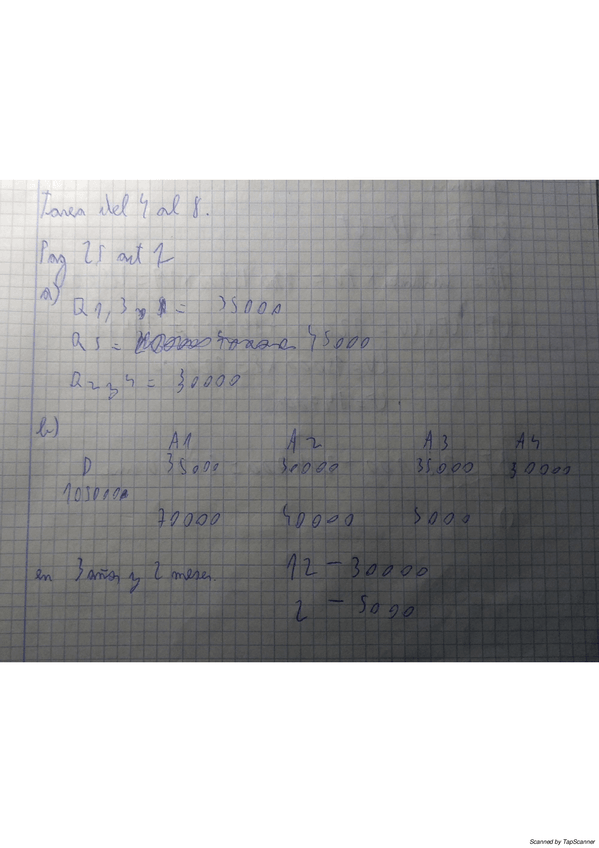 Tarea del 4 al 8.
Pag 25 act 2
a)
Q1, 3 = 35000
Q5 = 45000
Q2 y 4 = 30000
b)
A1 A2 A3 A4
D 35000 30000 35000 30000
105000
70000 40000 5000
en 3 años y 2 meses. 12 - 30000
2 - 5000
Scanned by TapScanner